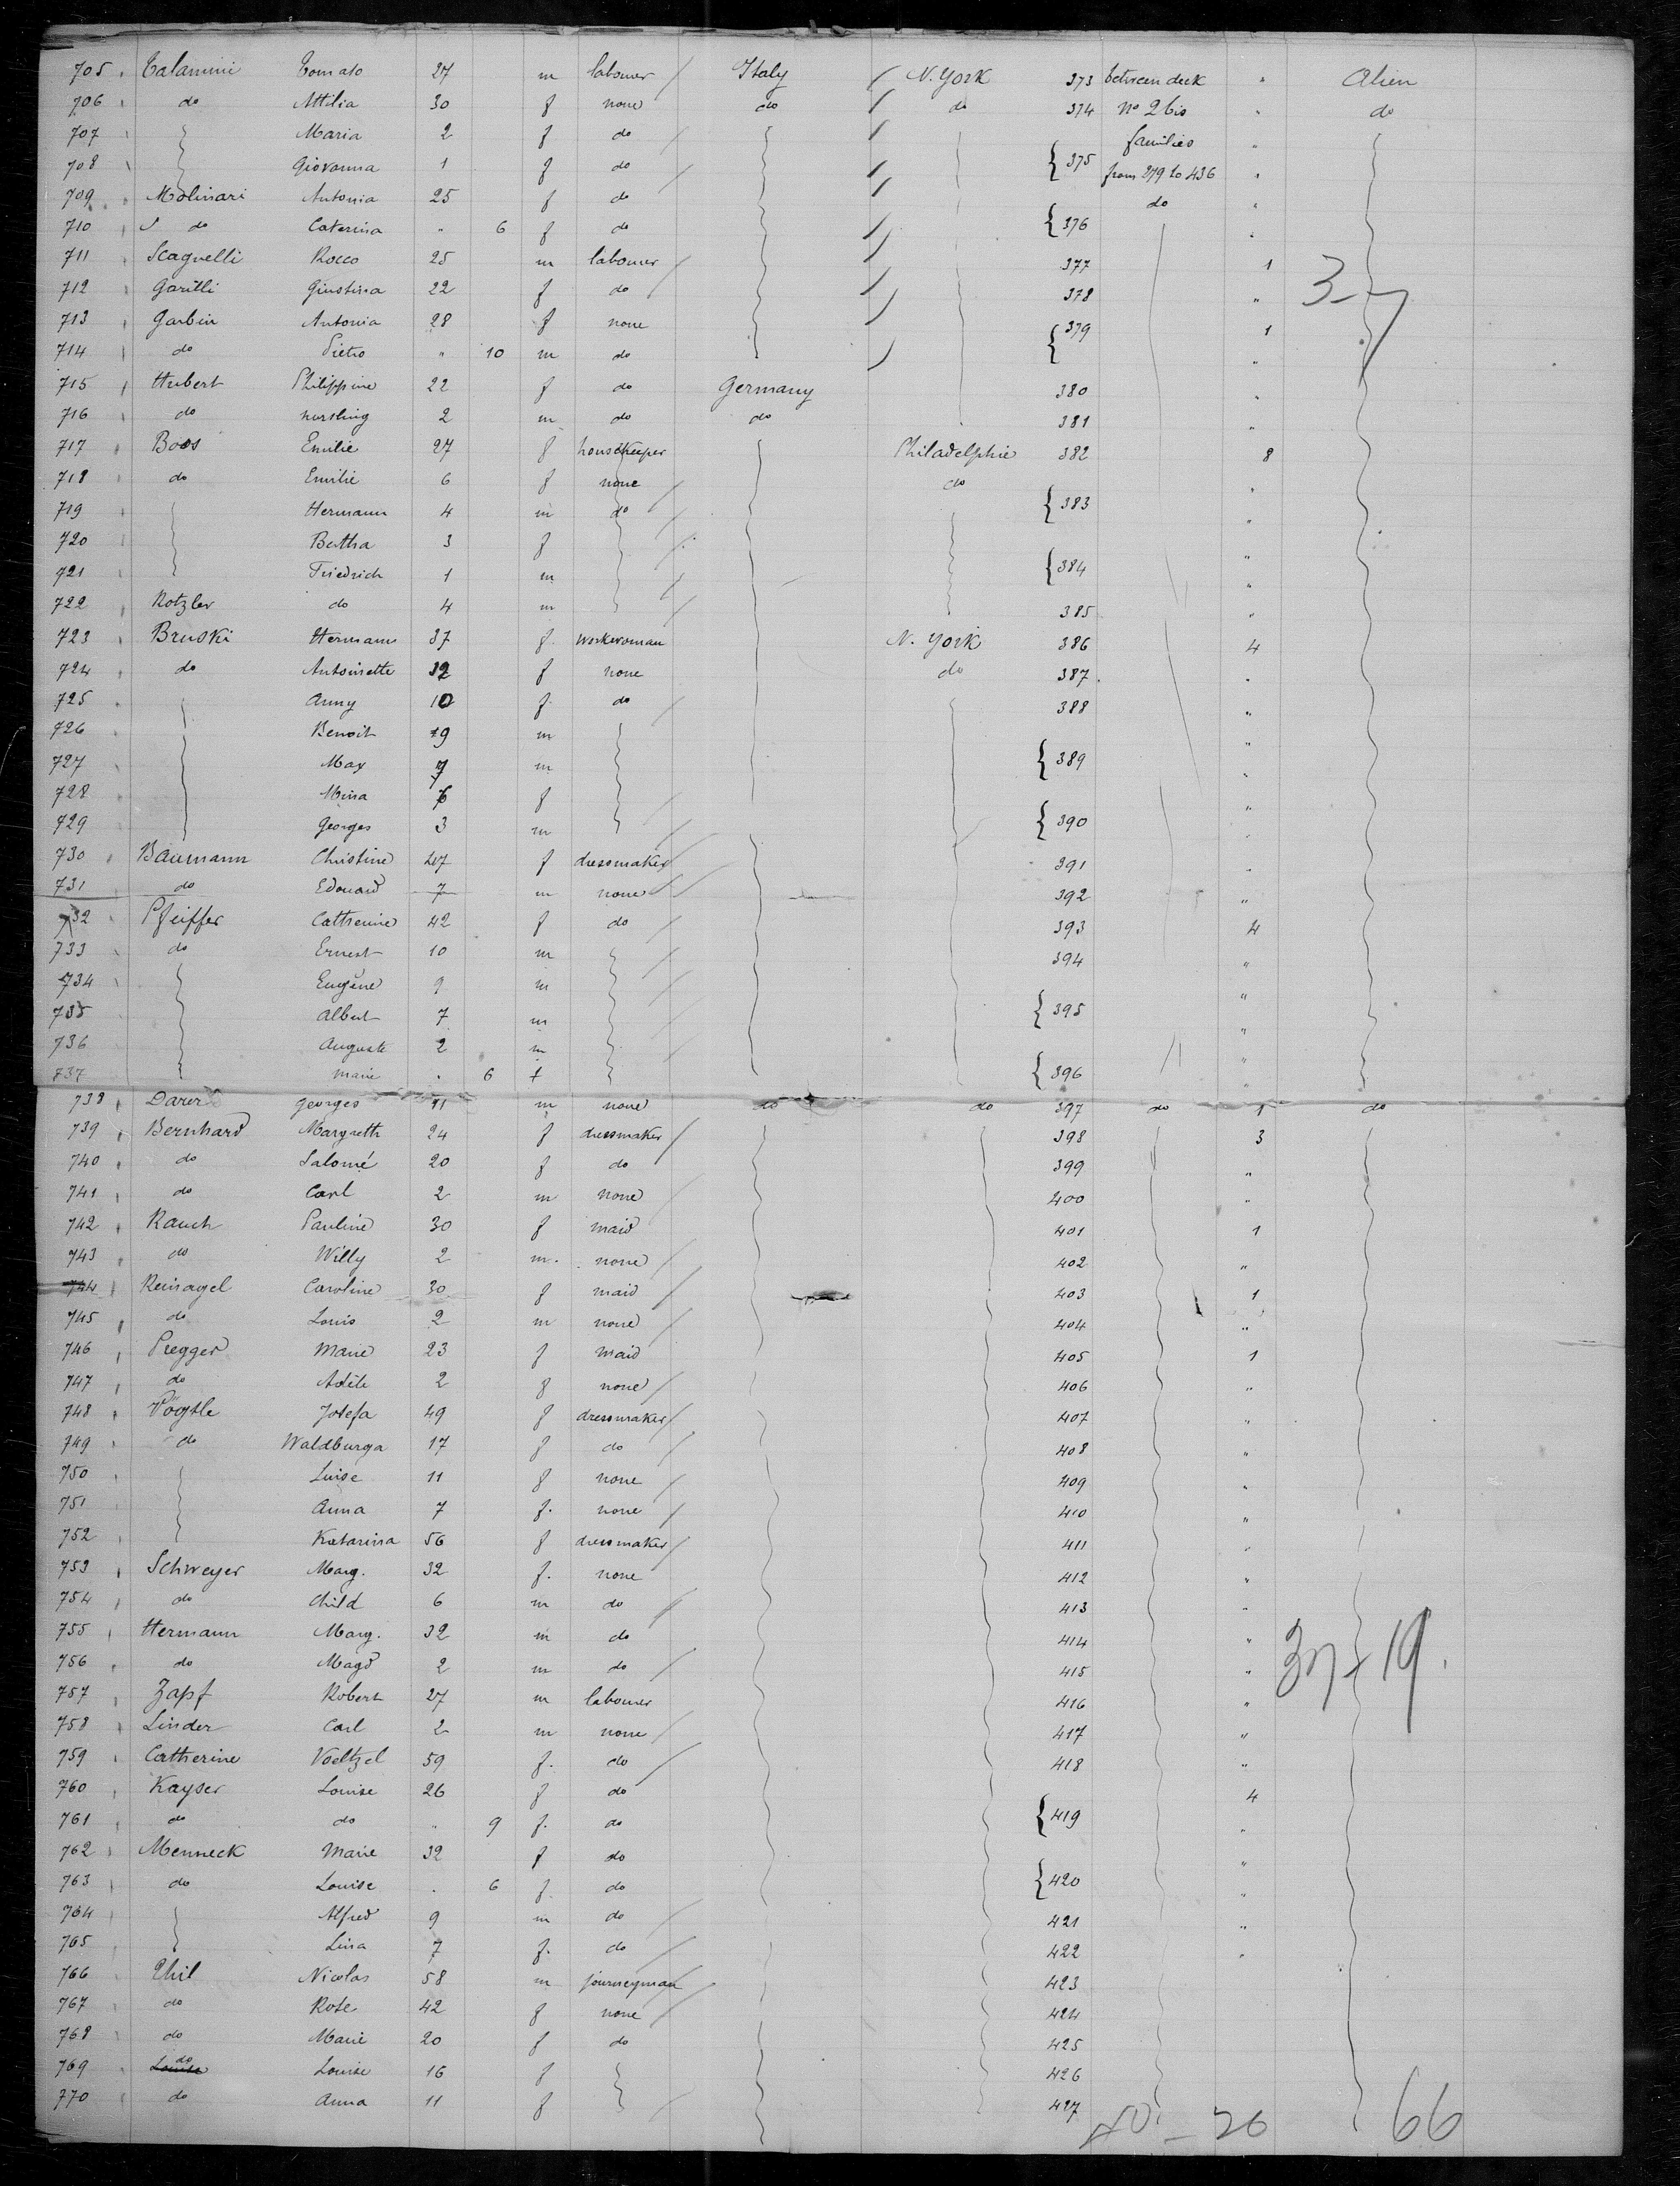 705 Calamini Tomato 27 m labourer Italy N. York 373 between deck " Alien
706 do Attilia 30 f none do do 374 no 2 bis " do
707 Maria 2 f do families "
708 Giovanna 1 f do { 375 from 279 to 436 "
709 Molinari Antonia 25 f do do "
710 do Caterina " 6 f do { 376 "
711 Scagnelli Rocco 25 m labourer 377 1
712 Garilli Giustina 22 f do 378 " 3-7
713 Garbin Antonia 28 f none { 379 1
714 do Pietro " 10 m do "
715 Hubert Philippine 22 f do Germany 380 "
716 do nursling 2 m do do 381 "
717 Boos Emilie 27 f housekeeper Philadelphie 382 8
718 do Emilie 6 f none do "
719 Hermann 4 m do { 383 "
720 Bertha 3 f "
721 Friedrich 1 m { 384 "
722 Kotzler do 4 m 385 "
723 Bruski Hermann 37 f. workwoman N. York 386 4
724 do Antoinette 32 f none do 387 "
725 Anny 10 f. do 388 "
726 Benoit 9 m "
727 Max 7 m { 389 "
728 Mina 6 f "
729 Georges 3 m { 390 "
730 Baumann Christine 47 f dressmaker 391 "
731 do Edouard 7 m none 392 "
732 Pfeiffer Catherine 42 f do 393 4
733 do Ernest 10 m 394 "
734 Eugène 9 m "
735 Albert 7 m { 395 "
736 Auguste 2 m "
737 Marie . 6 f { 396 "
738 Darer Georges 11 m none do do 397 do 1 do
739 Bernhard Margreth 24 f dressmaker 398 3
740 do Salomé 20 f do 399 "
741 do Carl 2 m none 400 "
742 Rauch Pauline 30 f maid 401 1
743 do Willy 2 m. none 402 "
744 Reinagel Caroline 30 f maid 403 1
745 do Louis 2 m none 404 "
746 Pregger Marie 23 f maid 405 1
747 do Adèle 2 f none 406 "
748 Vögtle Josefa 49 f dressmaker 407 "
749 do Waldburga 17 f do 408 "
750 Luise 11 f none 409 "
751 Anna 7 f. none 410 "
752 Katarina 56 f dressmaker 411 "
753 Schweyer Marg. 32 f. none 412 "
754 do Child 6 m do 413 "
755 Hermann Marg. 32 m do 414 "
756 do Magd 2 m do 415 " 37-19.
757 Zapf Robert 27 m labourer 416 "
758 Linder Carl 2 m none 417 "
759 Catherine Voeltzel 59 f. do 418 "
760 Kayser Louise 26 f do 4
761 do do " 9 f. do { 419 "
762 Menneck Marie 32 f do "
763 do Louise . 6 f. do { 420 "
764 Alfred 9 m do 421 "
765 Lina 7 f. do 422 "
766 Uhil Nicolas 58 m journeyman 423
767 do Rose 42 f none 424
768 do Marie 20 f do 425
769 do Louise 16 f 426
770 do Anna 11 f 427
40-26 66